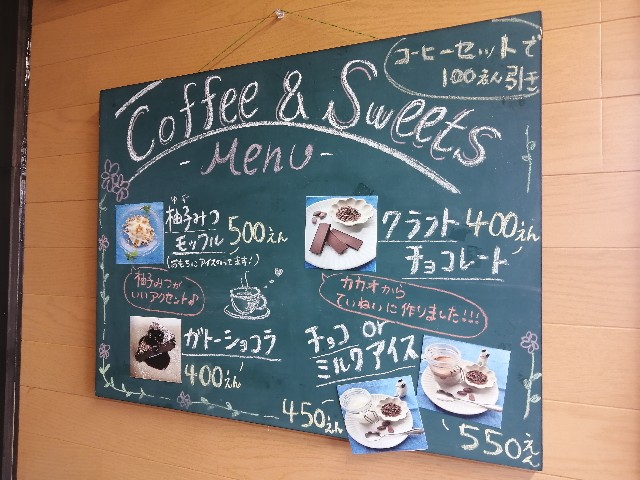 コーヒーセットで
100えん引き
Coffee & Sweets
- Menu -
ゆず
柚子みつ
モッフル 500えん
(おもちにアイスのってます!)
柚子みつが
いいアクセント♪
クラフト 400えん
チョコレート
カカオから
ていねいに作りました!!!
ガトーショコラ
400えん
チョコ or
ミルクアイス
450えん
550えん